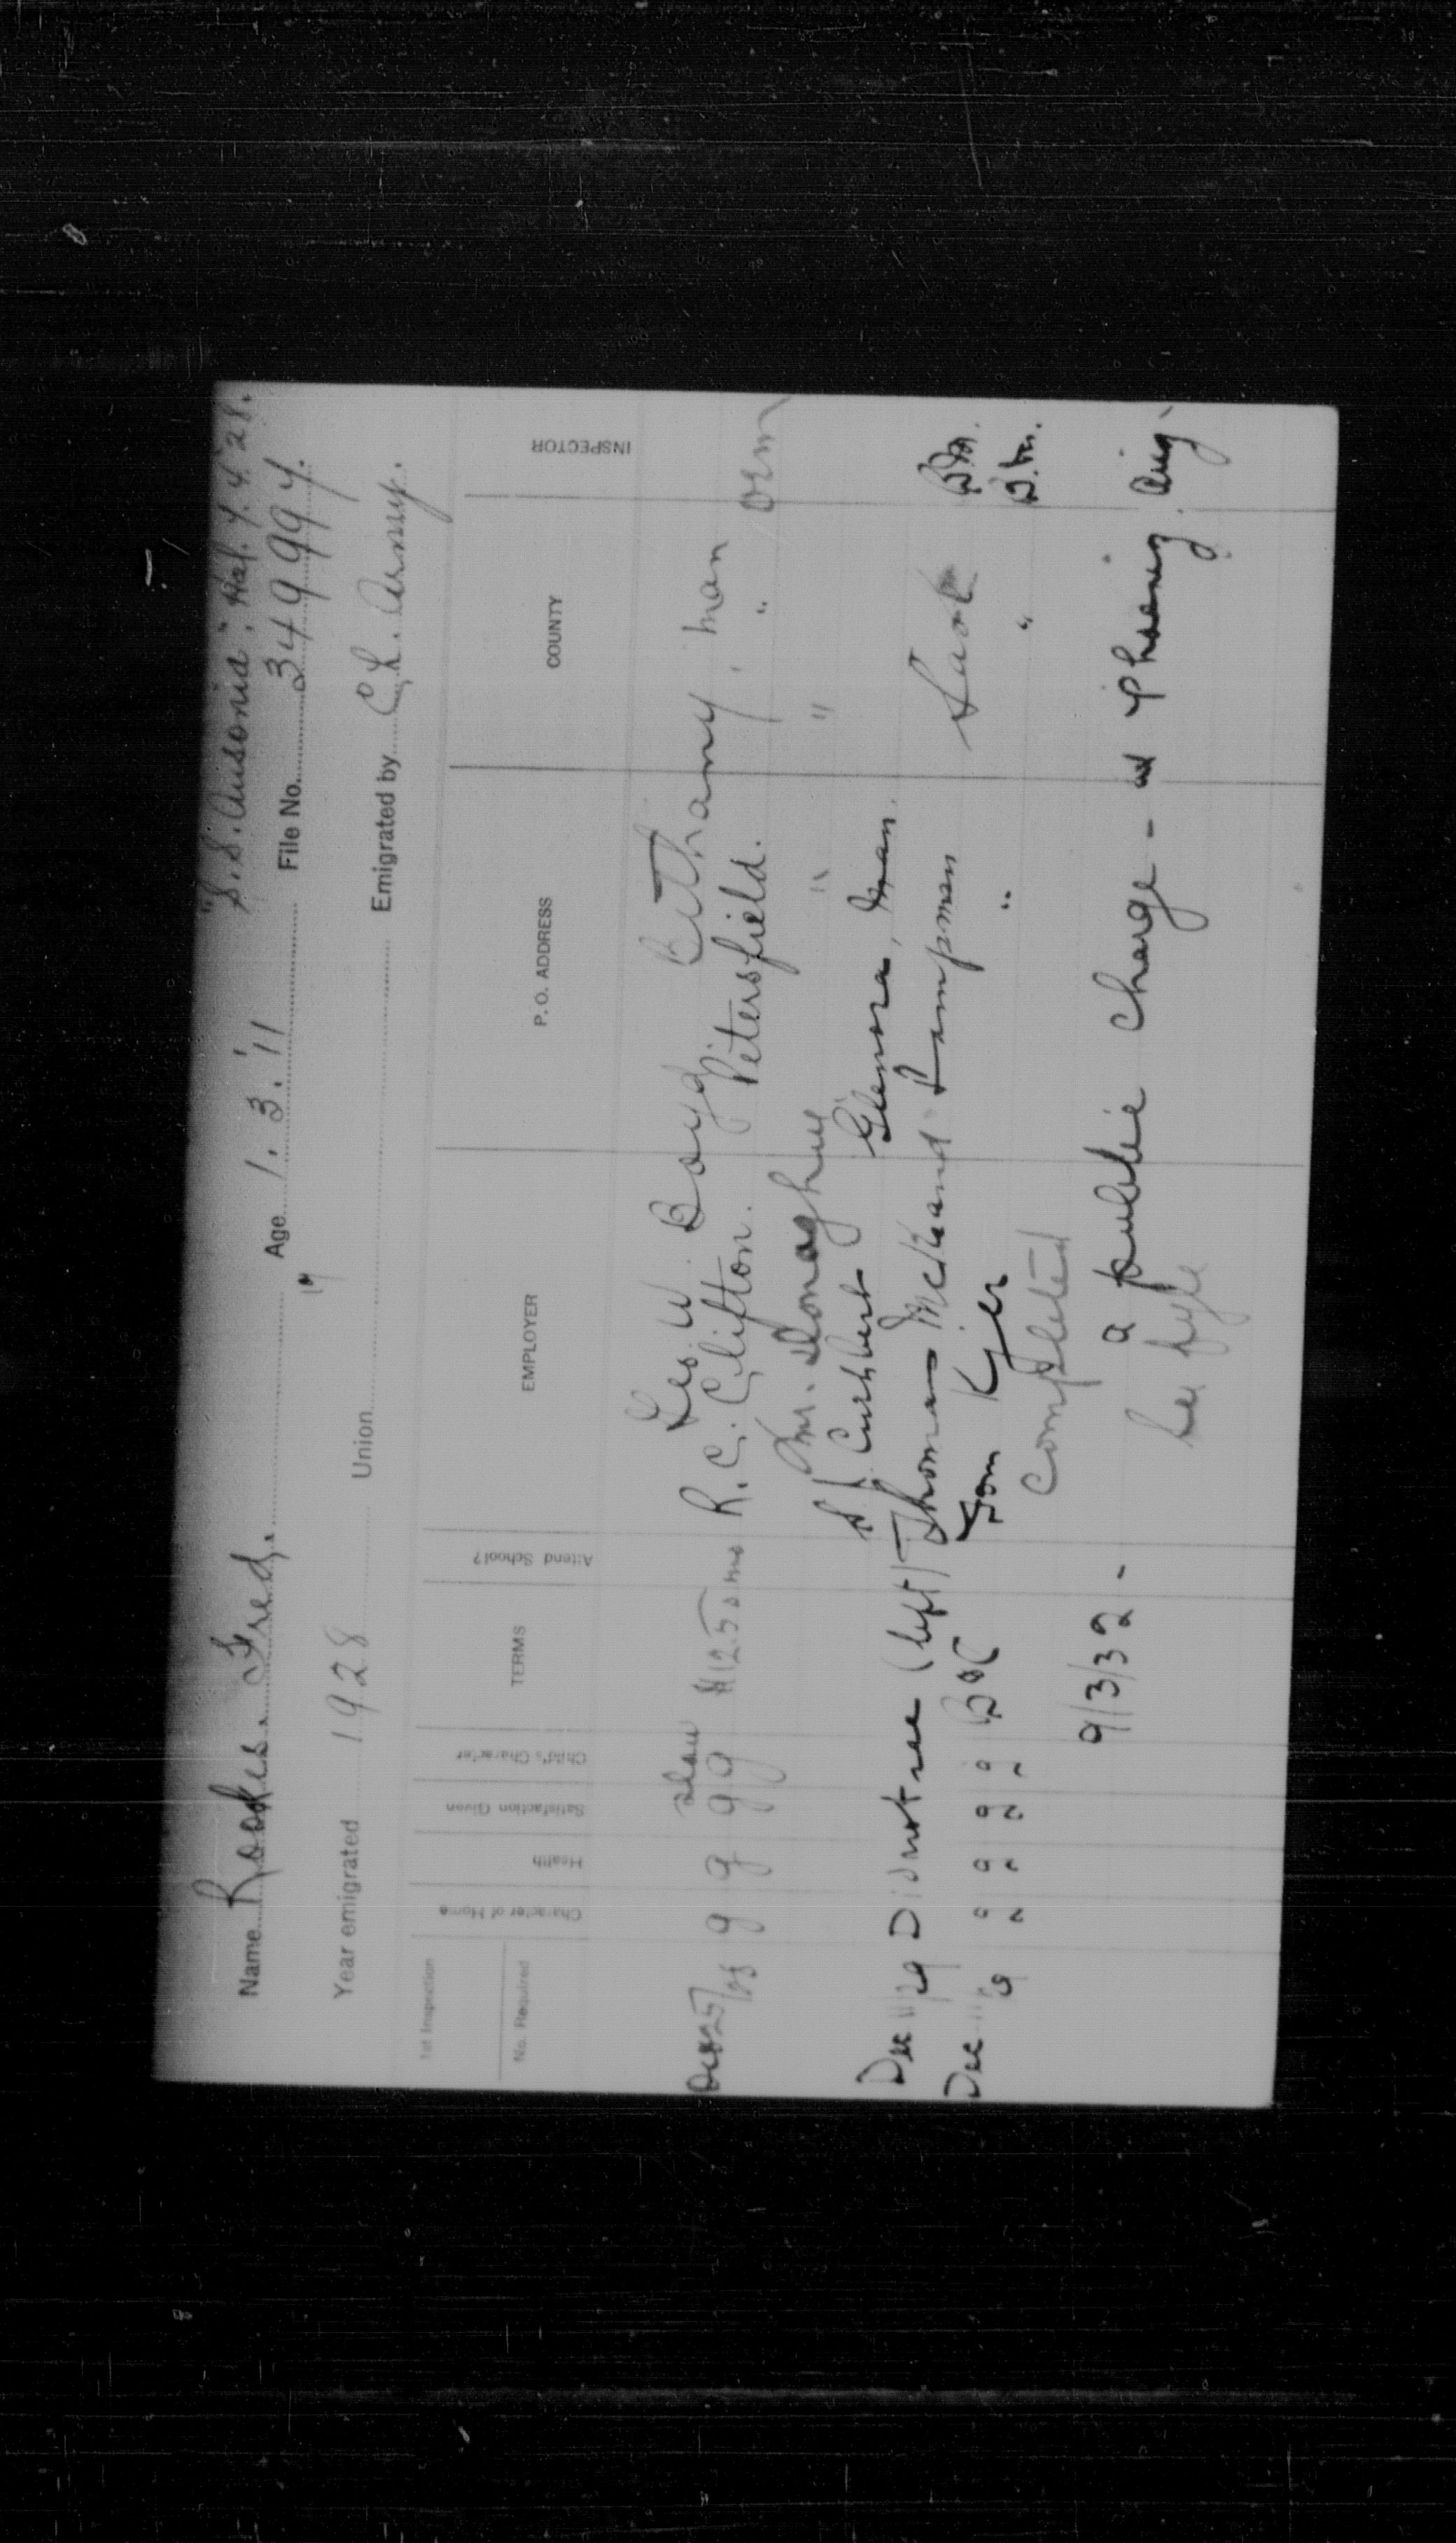 "S.S. Ausonia". Hal. 7. 4. 28.
Name Rookes. Fred. Age 1. 3. '11 File No. 349997.
17
Year emigrated 1928 Union Emigrated by C.L. Army.
1st Inspection
No. Required
Character of Home Health Satisfaction Given Child's Character TERMS Attend School? EMPLOYER P. O. ADDRESS COUNTY INSPECTOR
Geo. W. Boyd Bethany, Man
Oct 25/28 g g g g slow $12.50 mo R. C. Clifton. Petersfield. " orm
Mr. Donaghue " "
S J Cuthbert Glenora, Man.
Dec 11/29 Did not see (left) Thomas McKand Lampman Sask BM.
Dec 11/29 g g g g B & C Tom Kyer " " B.M.
completed
9/3/32 - a public charge - at Phoenix. Aug.
See fyle